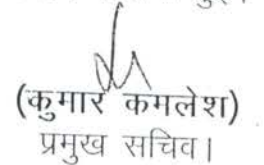 (कुमार कमलेश)
प्रमुख सचिव।